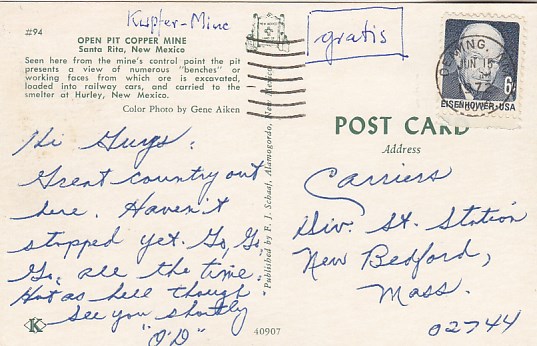 Kupfer-Mine
gratis
#94
OPEN PIT COPPER MINE
Santa Rita, New Mexico
Seen here from the mine's control point the pit
presents a view of numerous "benches" or
working faces from which ore is excavated,
loaded into railway cars, and carried to the
smelter at Hurley, New Mexico.
Color Photo by Gene Aiken
Hi Guys:
Great country out
here. Haven't
stopped yet. Go, Go,
Go, all the time.
Hot as hell though.
See you shortly
"O'D"
Published by F. J. Schaaf, Alamogordo, New Mexico
K
40907
DEMING,
JUN 15
6¢
EISENHOWER·USA
POST CARD
Address
Carriers
Div. St. Station
New Bedford,
Mass.
02744